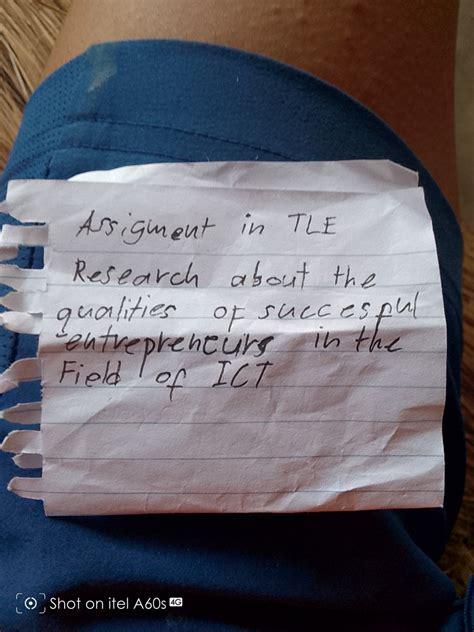 Assigment in TLE
Research about the
qualities of succesful
entrepreneurs in the
Field of ICT
Shot on itel A60s 4G